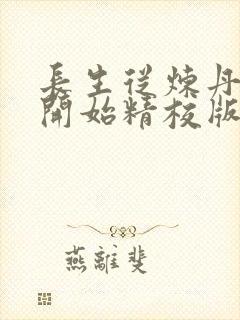 長生從煉丹
開始精校版
燕離斐